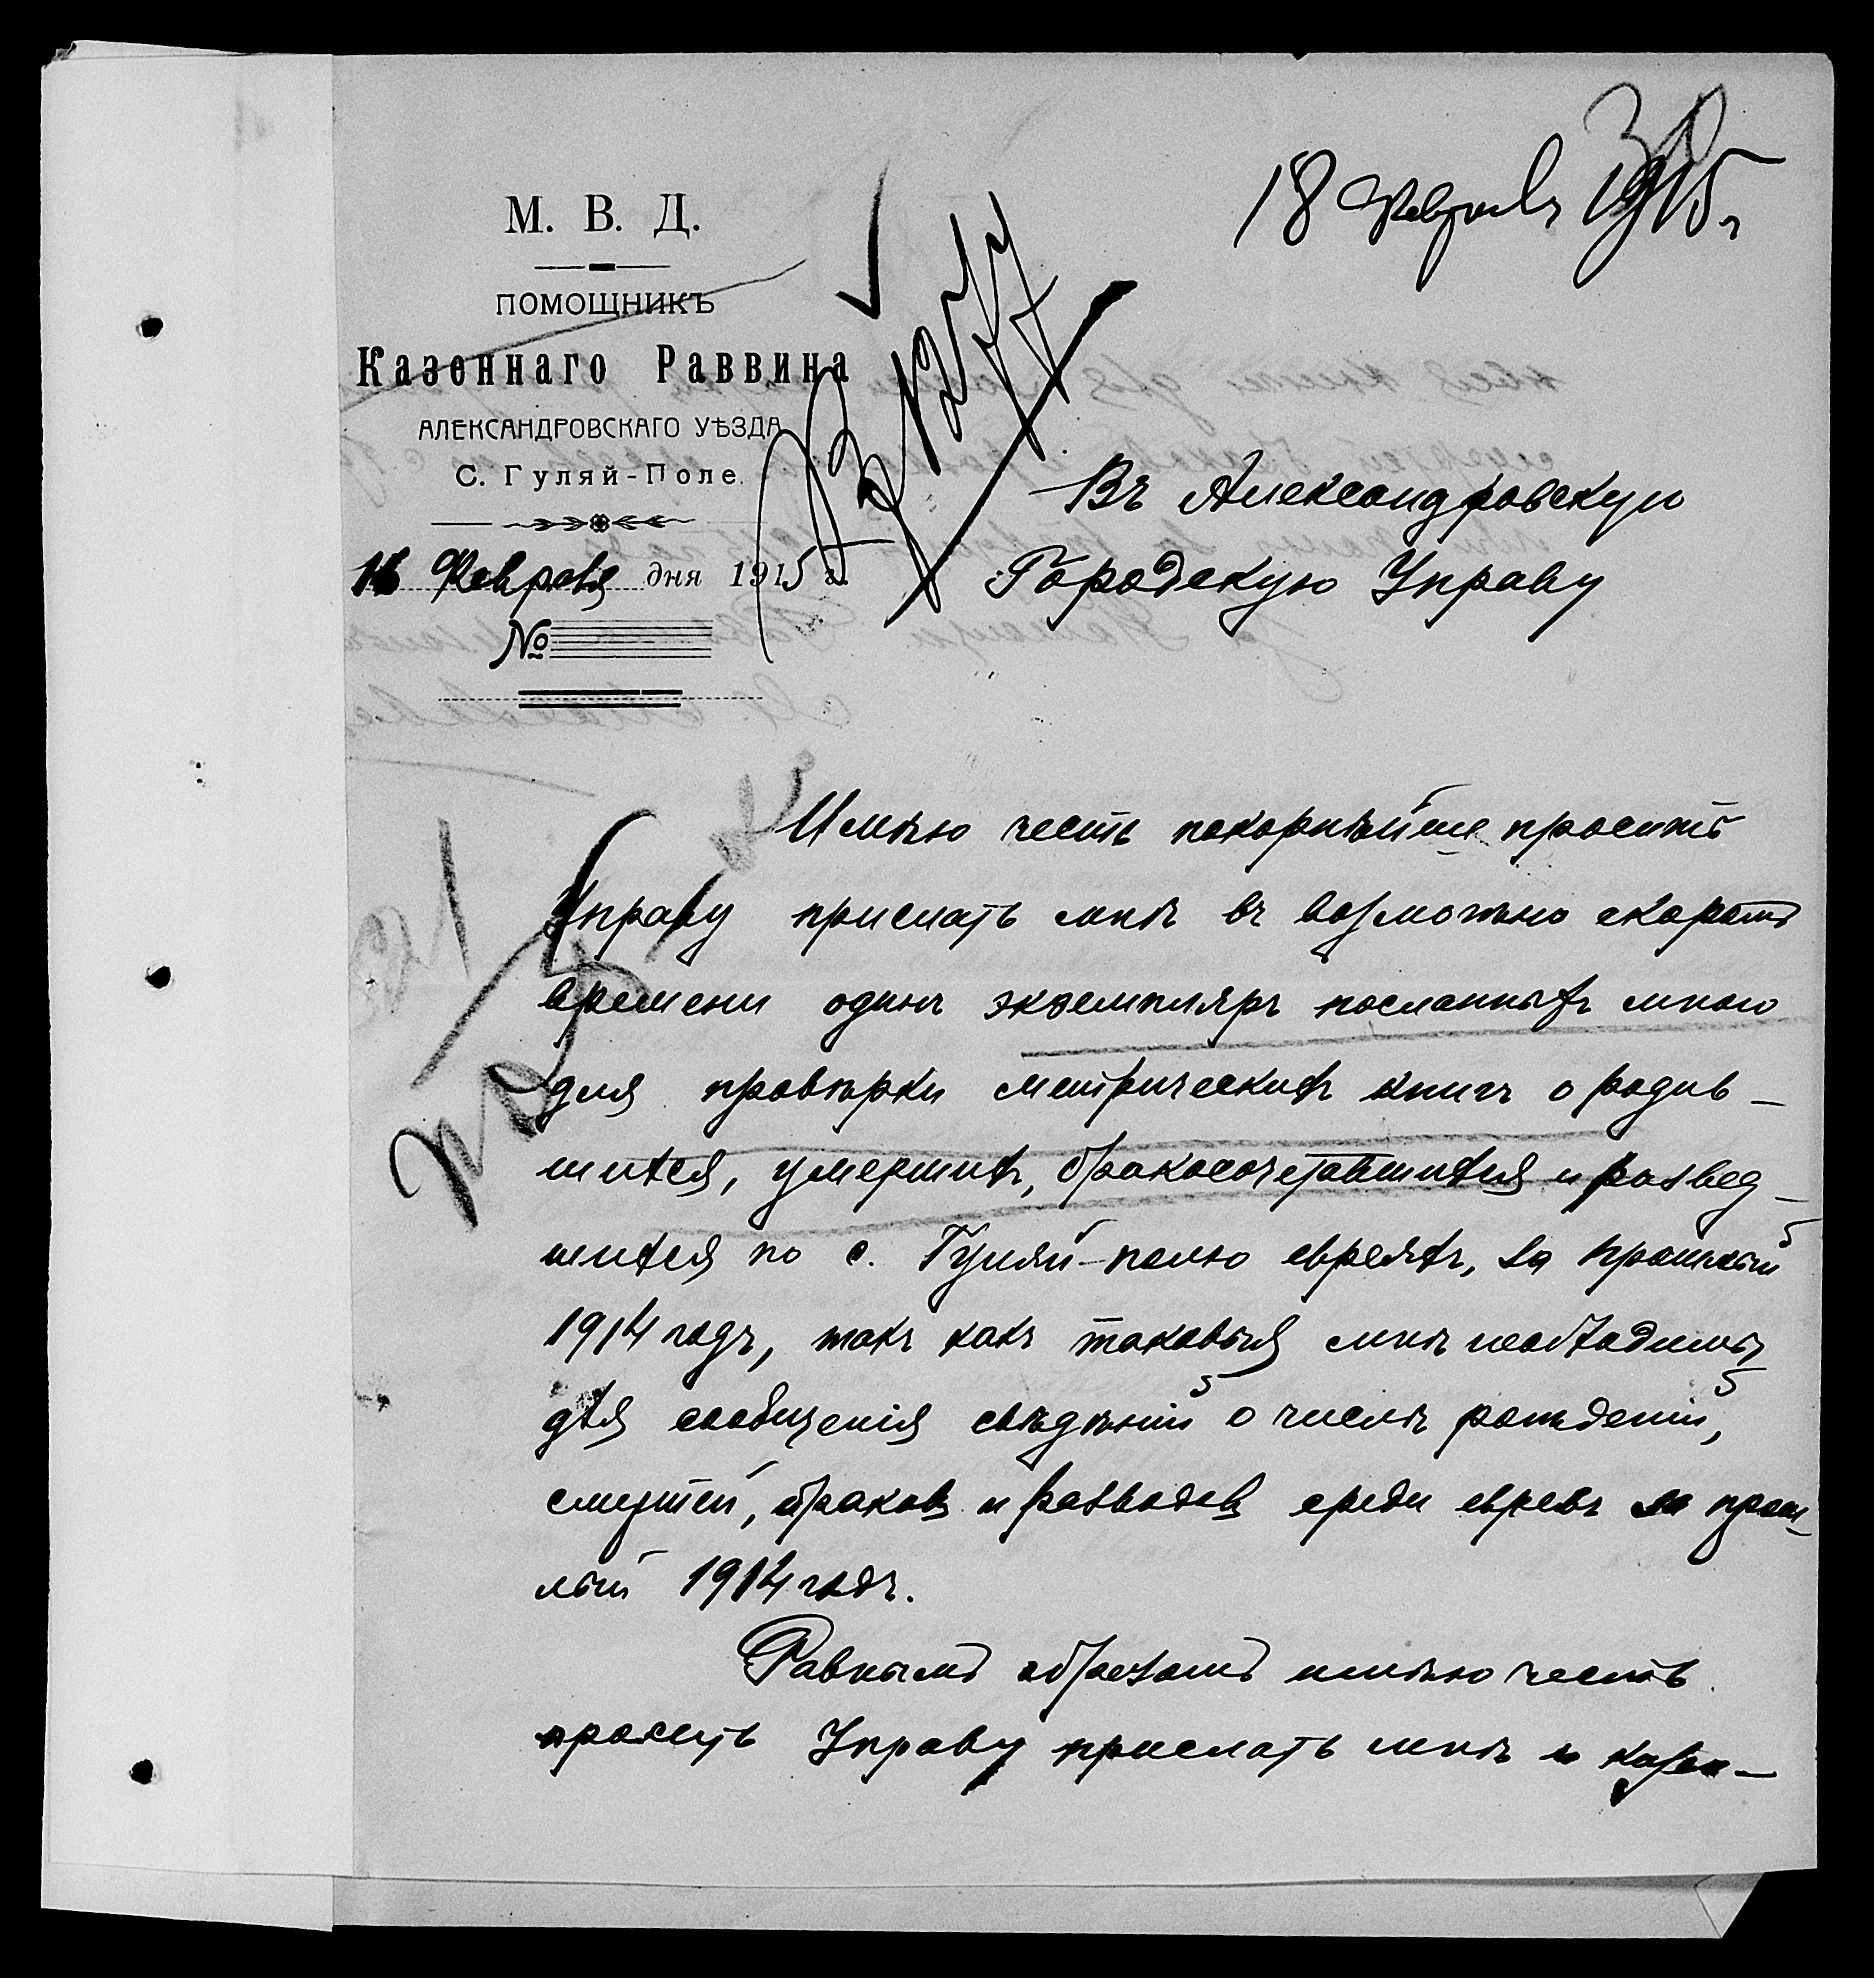 18 Февраля 1915 г
М. В. Д.
ПОМОЩНИКЪ
Казеннаго Раввина
АЛЕКСАНДРОВСКАГО УѢЗДА
С. Гуляй-Поле.
16 Февраля дня 1915 г.
№
Въ Александровскую
Городскую Управу
Имѣю честь покорнѣйше просить
Управу прислать мнѣ въ возможно скоромъ
времени одинъ экземпляръ посланныхъ мною
для провѣрки метрическихъ книгъ о родив-
шихся, умершихъ, бракосочетавшихся и развед-
шихся по с. Гуляй-полю евреяхъ, за прошлый
1914 годъ, такъ какъ таковыя мнѣ необходимы
для сообщенія свѣдѣній о числѣ рожденій,
смертей, браковъ и разводовъ среди евреевъ за прош-
лый 1914 годъ.
Равнымъ образомъ имѣю честь
просить Управу прислать мнѣ и казен-